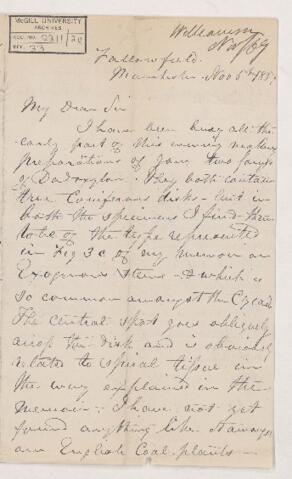 McGILL UNIVERSITY
ARCHIVES
ACC. NO. 2211/20
REF. 33
Williamson
Nov/69
Fallowfield.
Manchester Nov 5th
My Dear Sir
I have been busy all the
early part of this evening making
preparations of your two forms
of Dadoxylon. They both contain
true Coniferous disks – but in
both the specimens I find them
to be of the type represented
in Fig 30 of my memoir on
Exogenous stems & which is
so common amongst the Cycads.
The central spot goes obliquely
across the disk and is obviously
related to spiral tissue in
the way explained in the
memoir. I have not yet
found anything like it amongst
our English Coal plants –